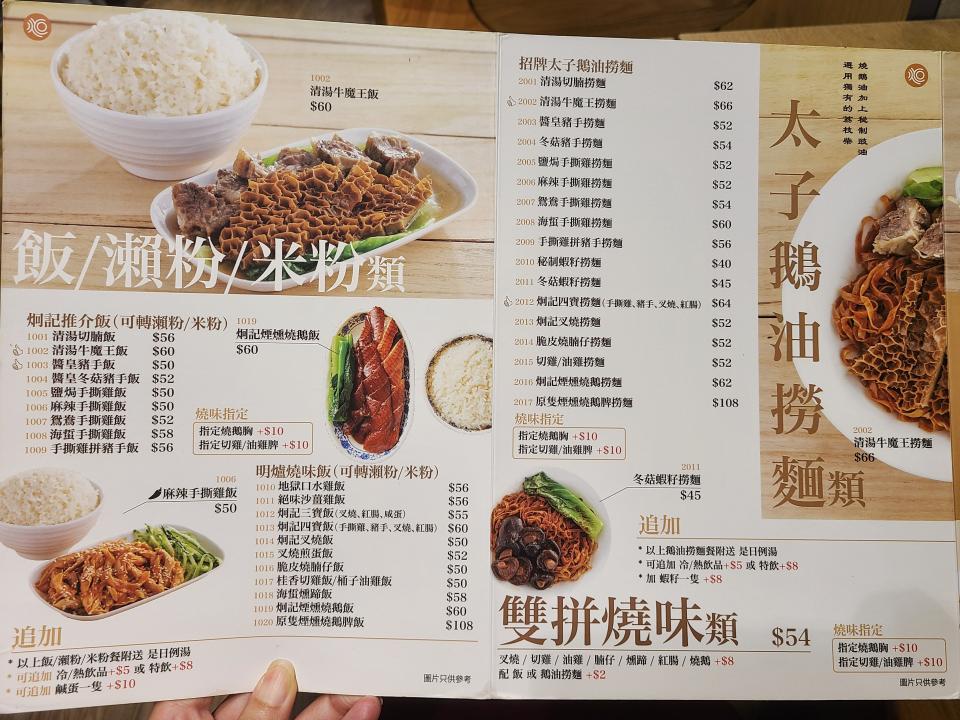 1002
清湯牛魔王飯
$60
飯/瀨粉/米粉類
炯記推介飯(可轉瀨粉/米粉)
1001 清湯切腩飯 $56
1002 清湯牛魔王飯 $60
1003 醬皇豬手飯 $50
1004 醬皇冬菇豬手飯 $52
1005 鹽焗手撕雞飯 $50
1006 麻辣手撕雞飯 $50
1007 鴛鴦手撕雞飯 $52
1008 海蜇手撕雞飯 $58
1009 手撕雞拼豬手飯 $56
1019
炯記煙燻燒鵝飯
$60
燒味指定
指定燒鵝胸 +$10
指定切雞/油雞髀 +$10
1006
麻辣手撕雞飯
$50
明爐燒味飯(可轉瀨粉/米粉)
1010 地獄口水雞飯 $56
1011 絕味沙薑雞飯 $56
1012 炯記三寶飯(叉燒、紅腸、咸蛋) $55
1013 炯記四寶飯(手撕雞、豬手、叉燒、紅腸) $60
1014 炯記叉燒飯 $50
1015 叉燒煎蛋飯 $52
1016 脆皮燒腩仔飯 $50
1017 桂香切雞飯/桶子油雞飯 $50
1018 海蜇燻蹄飯 $58
1019 炯記煙燻燒鵝飯 $60
1020 原隻煙燻燒鵝髀飯 $108
追加
* 以上飯/瀨粉/米粉餐附送 是日例湯
* 可追加 冷/熱飲品+$5 或 特飲+$8
* 可追加 鹹蛋一隻 +$10
圖片只供參考
招牌太子鵝油撈麵
2001 清湯切腩撈麵 $62
2002 清湯牛魔王撈麵 $66
2003 醬皇豬手撈麵 $52
2004 冬菇豬手撈麵 $54
2005 鹽焗手撕雞撈麵 $52
2006 麻辣手撕雞撈麵 $52
2007 鴛鴦手撕雞撈麵 $54
2008 海蜇手撕雞撈麵 $60
2009 手撕雞拼豬手撈麵 $56
2010 秘制蝦籽撈麵 $40
2011 冬菇蝦籽撈麵 $45
2012 炯記四寶撈麵(手撕雞、豬手、叉燒、紅腸) $64
2013 炯記叉燒撈麵 $52
2014 脆皮燒腩仔撈麵 $52
2015 切雞/油雞撈麵 $52
2016 炯記煙燻燒鵝撈麵 $62
2017 原隻煙燻燒鵝髀撈麵 $108
燒味指定
指定燒鵝胸 +$10
指定切雞/油雞髀 +$10
燒鵝油加上秘制豉油
選用獨有的荔枝柴
太子鵝油撈麵類
2002
清湯牛魔王撈麵
$66
2011
冬菇蝦籽撈麵
$45
追加
* 以上鵝油撈麵餐附送 是日例湯
* 可追加 冷/熱飲品+$5 或 特飲+$8
* 加 蝦籽一隻 +$8
雙拼燒味類 $54
叉燒 / 切雞 / 油雞 / 腩仔 / 燻蹄 / 紅腸 / 燒鵝 +$8
配 飯 或 鵝油撈麵 +$2
燒味指定
指定燒鵝胸 +$10
指定切雞/油雞髀 +$10
圖片只供參考